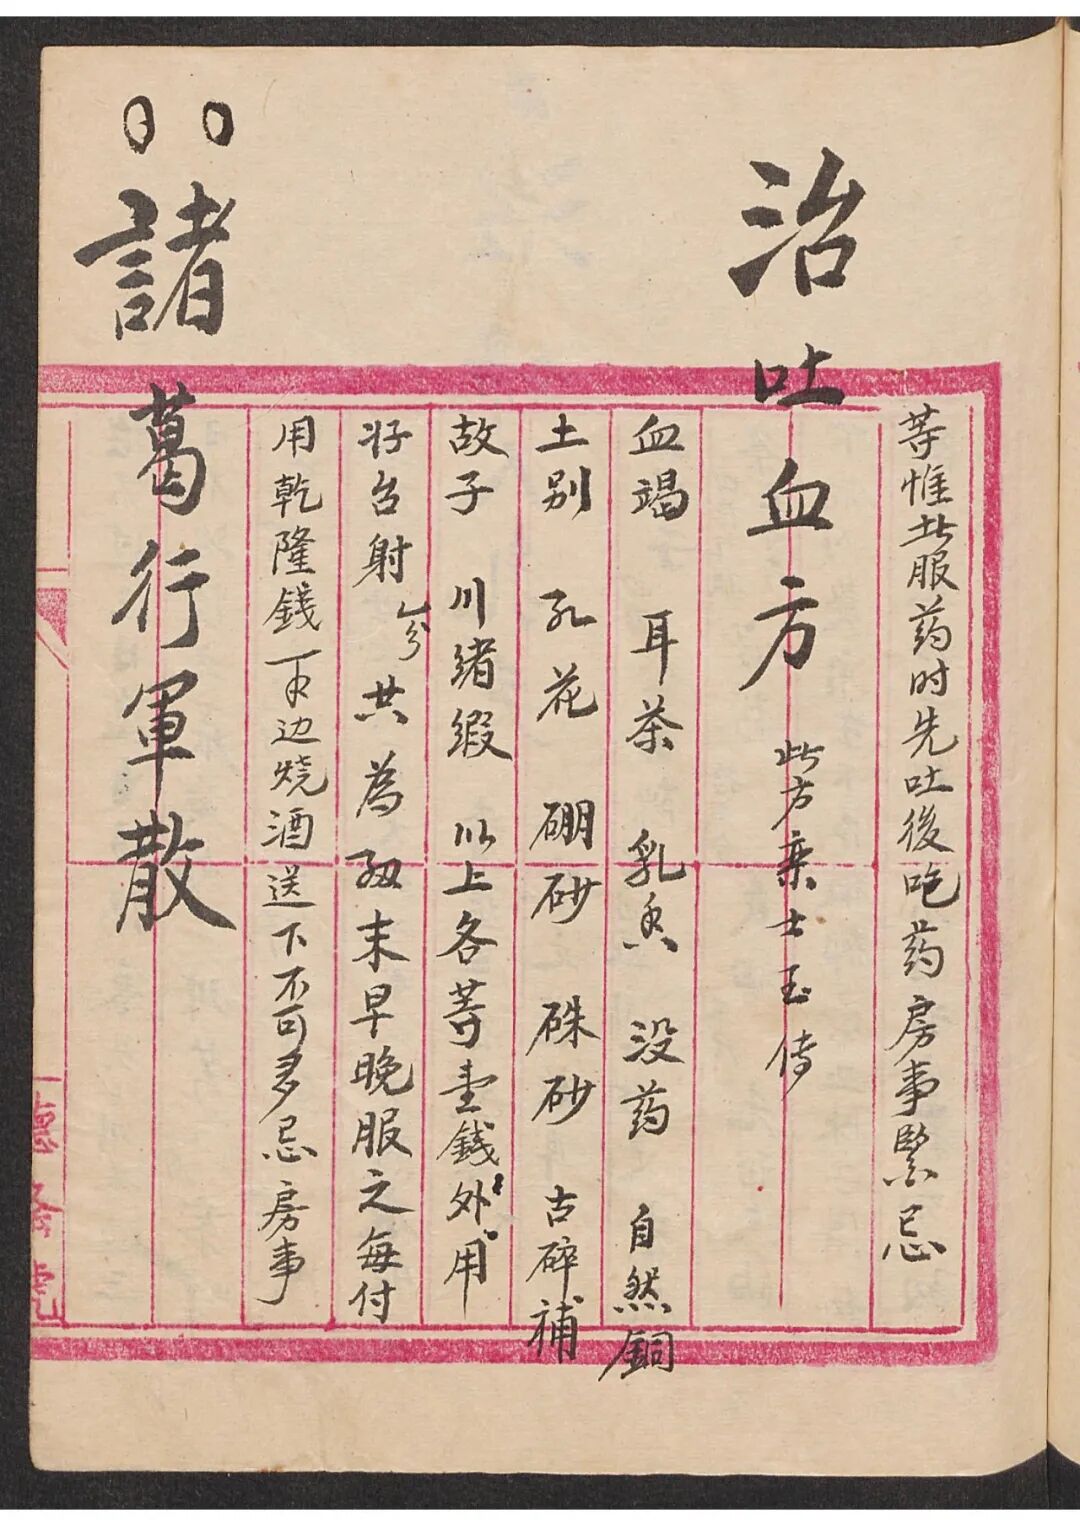 等惟此服药时先吐後吃药房事緊忌
治吐血方 此方秉士玉傳
血竭 耳茶 乳香 没药 自然銅
土别 孔花 硼砂 硃砂 古碎補
故子 川绪缎 以上各荨壹錢外用
将台射 共為 末早晚服之每付
用乾隆錢 边烧酒送下不可多忌房事
諸葛行軍散